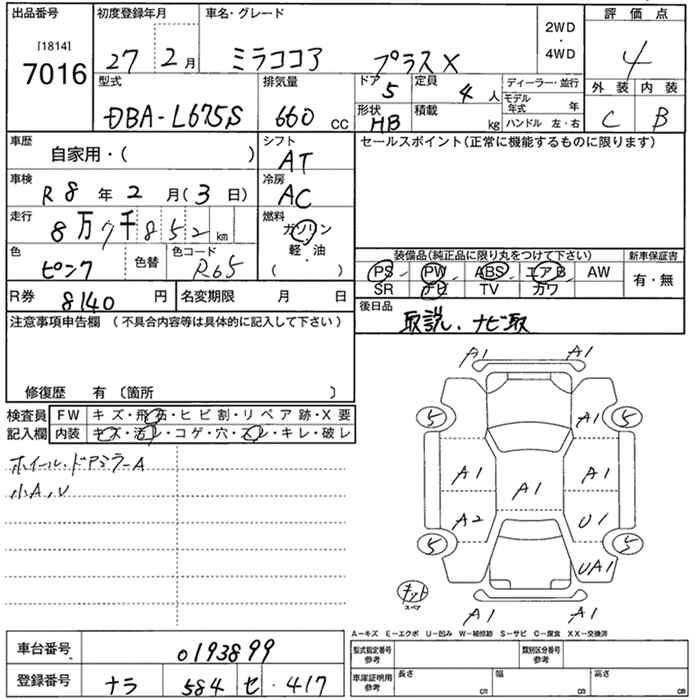 出品番号 初度登録年月 車名・グレード 評価点
[1814] 7016 27 2月 ミラココア プラスX 2WD・4WD 4
型式 排気量 ドア 5 定員 4人 ディーラー・並行 外装 内装
DBA-L675S 660 CC 形状 HB 積載 kg モデル年式 年 ハンドル 左・右 C B
車歴 自家用・( ) シフト AT セールスポイント(正常に機能するものに限ります)
車検 R8年2月(3日) 冷房 AC
走行 8万7千852km 燃料 ガソリン 軽・油 ( )
色 ピンク 色替 色コード R65
装備品(純正品に限り丸をつけて下さい) 新車保証書
PS PW ABS エアB AW 有・無
SR ナビ TV カワ
R券 8140円 名変期限 月 日 後日品 取説、ナビ取
注意事項申告欄 (不具合内容等は具体的に記入して下さい)
修復歴 有 〔箇所 〕
検査員記入欄 FW キズ・飛石・ヒビ割・リペア跡・X要
内装 キズ・汚レ・コゲ・穴・スレ・キレ・破レ
ホイール・ドアミラーA
小A,U
A1 A1
5 A1 5
A1 A1 A1
A2 U1
5 UA1 5
キット スペア
A1 A1
A−キズ E−エクボ U−凹み W−補修跡 S−サビ C−腐食 XX−交換済
車台番号 0193899
登録番号 ナラ 584 セ・417
型式指定番号 参考 類別区分番号 参考
車庫証明用 参考 長さ cm 幅 cm 高さ cm